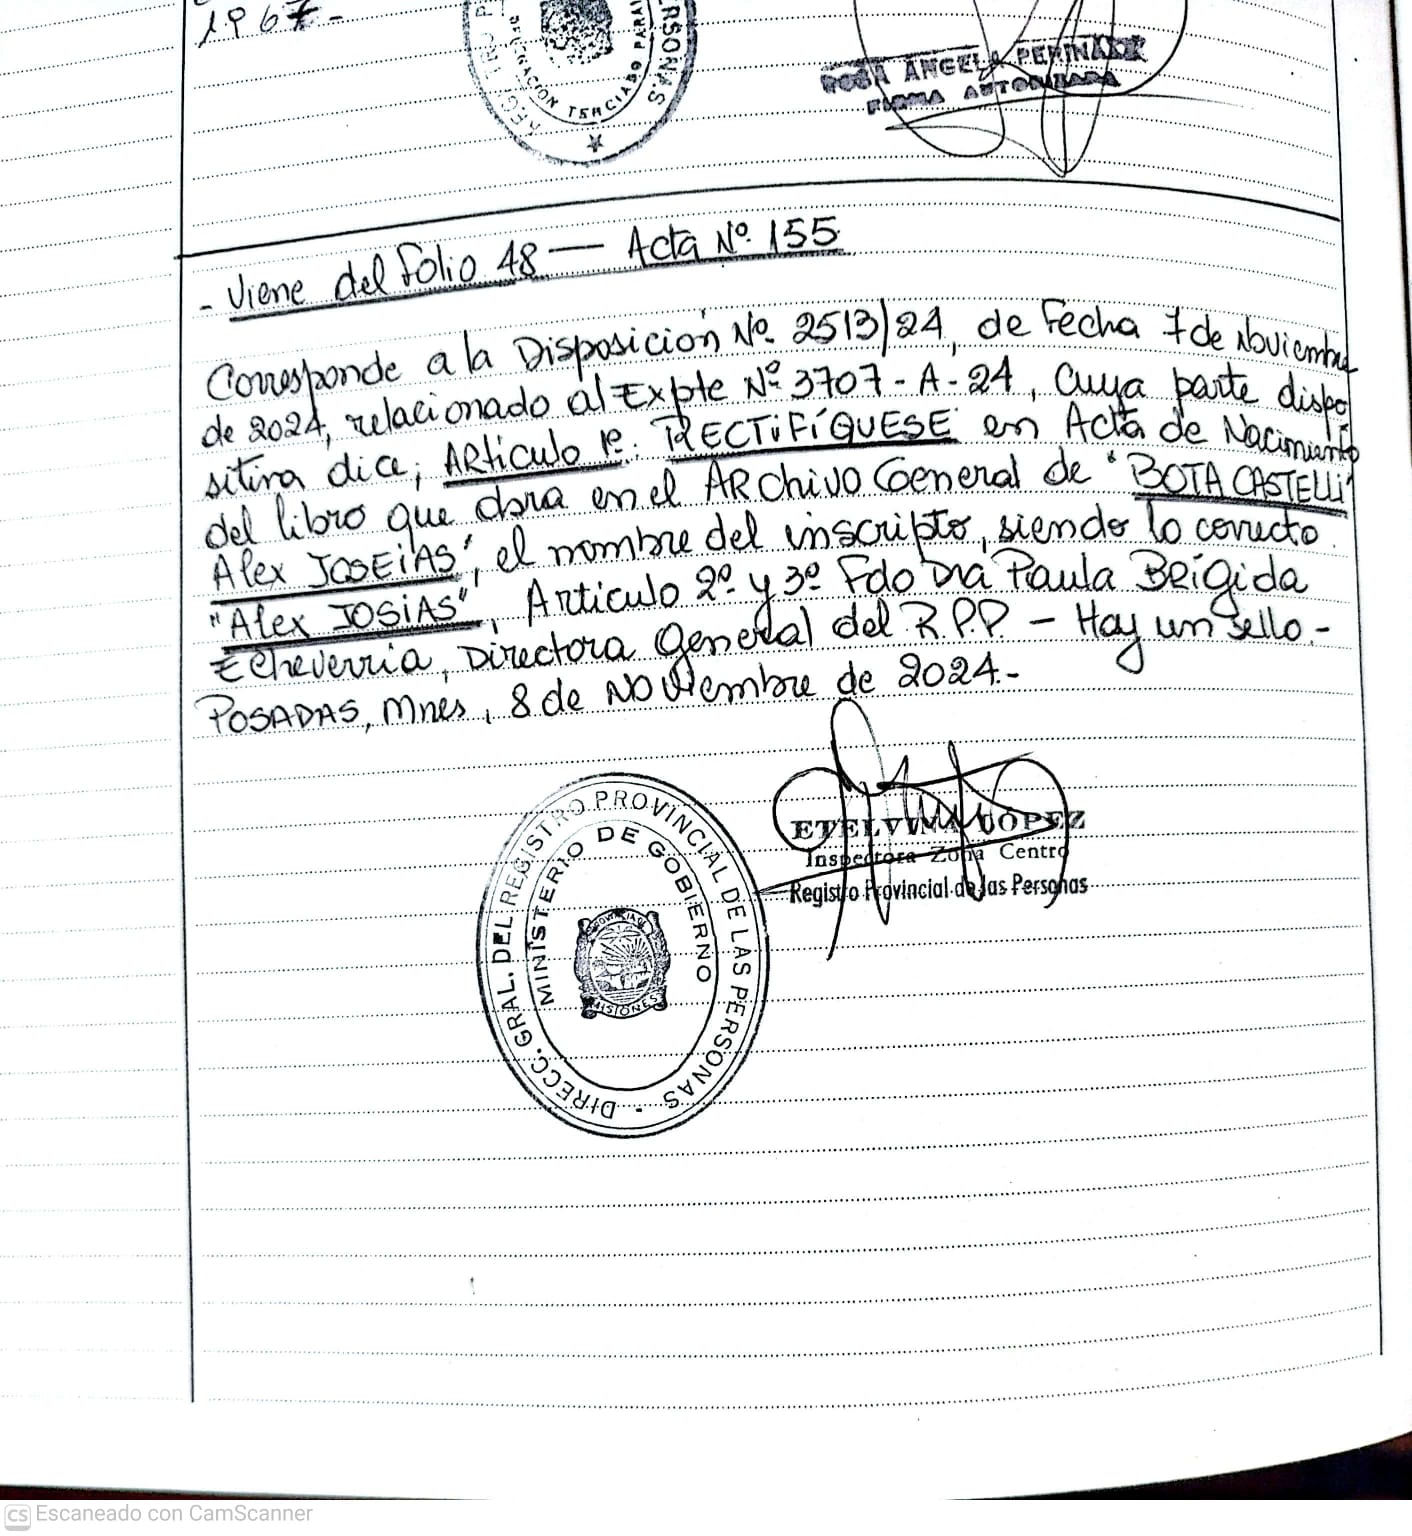 1967.-
ROSA ANGELA
FIRMA AUTORIZADA
- Viene del folio 48 — Acta Nº 155
Corresponde a la Disposición Nº 2513/24, de Fecha 7 de Noviembre
de 2024, relacionado al Expte Nº 3707-A-24, cuya parte dispo
sitiva dice; ARtículo 1º: RECTIFÍQUESE en Acta de Nacimiento
del libro que obra en el ARchivo General de "BOTA CASTELLI
Alex JOSEIAS", el nombre del inscripto, siendo lo correcto
"Alex JOSIAS", Articulo 2º y 3º Fdo Dra Paula Brígida
Echeverria, Directora General del R.P.P. – Hay un sello.-
POSADAS, Mnes, 8 de NOViembre de 2024.-
DIRECC. GRAL. DEL REGISTRO PROVINCIAL DE LAS PERSONAS -
MINISTERIO DE GOBIERNO
PROVINCIA DE
MISIONES
ETELVINA LÓPEZ
Inspectora Zona Centro
Registro Provincial de las Personas
CS Escaneado con CamScanner